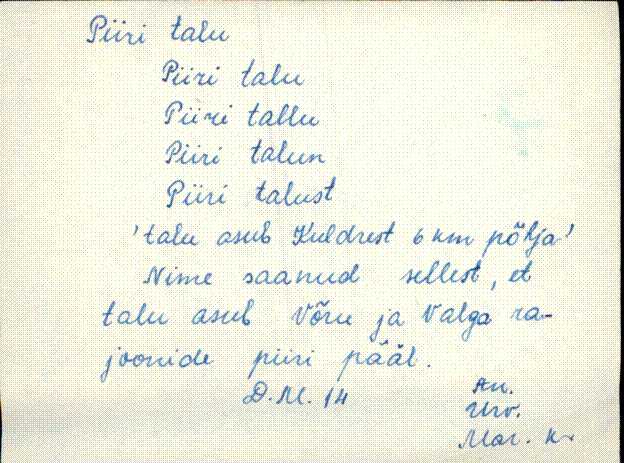 Piiri talu
Piiri talu
Piiri tallu
Piiri talun
Piiri talust
'talu asub Kuldrest 6 km põhja'
Nime saanud sellest, et
talu asub Võru ja Valga ra-
joonide piiri pääl.
D.M. 14
An.
Urv.
Mar. K.